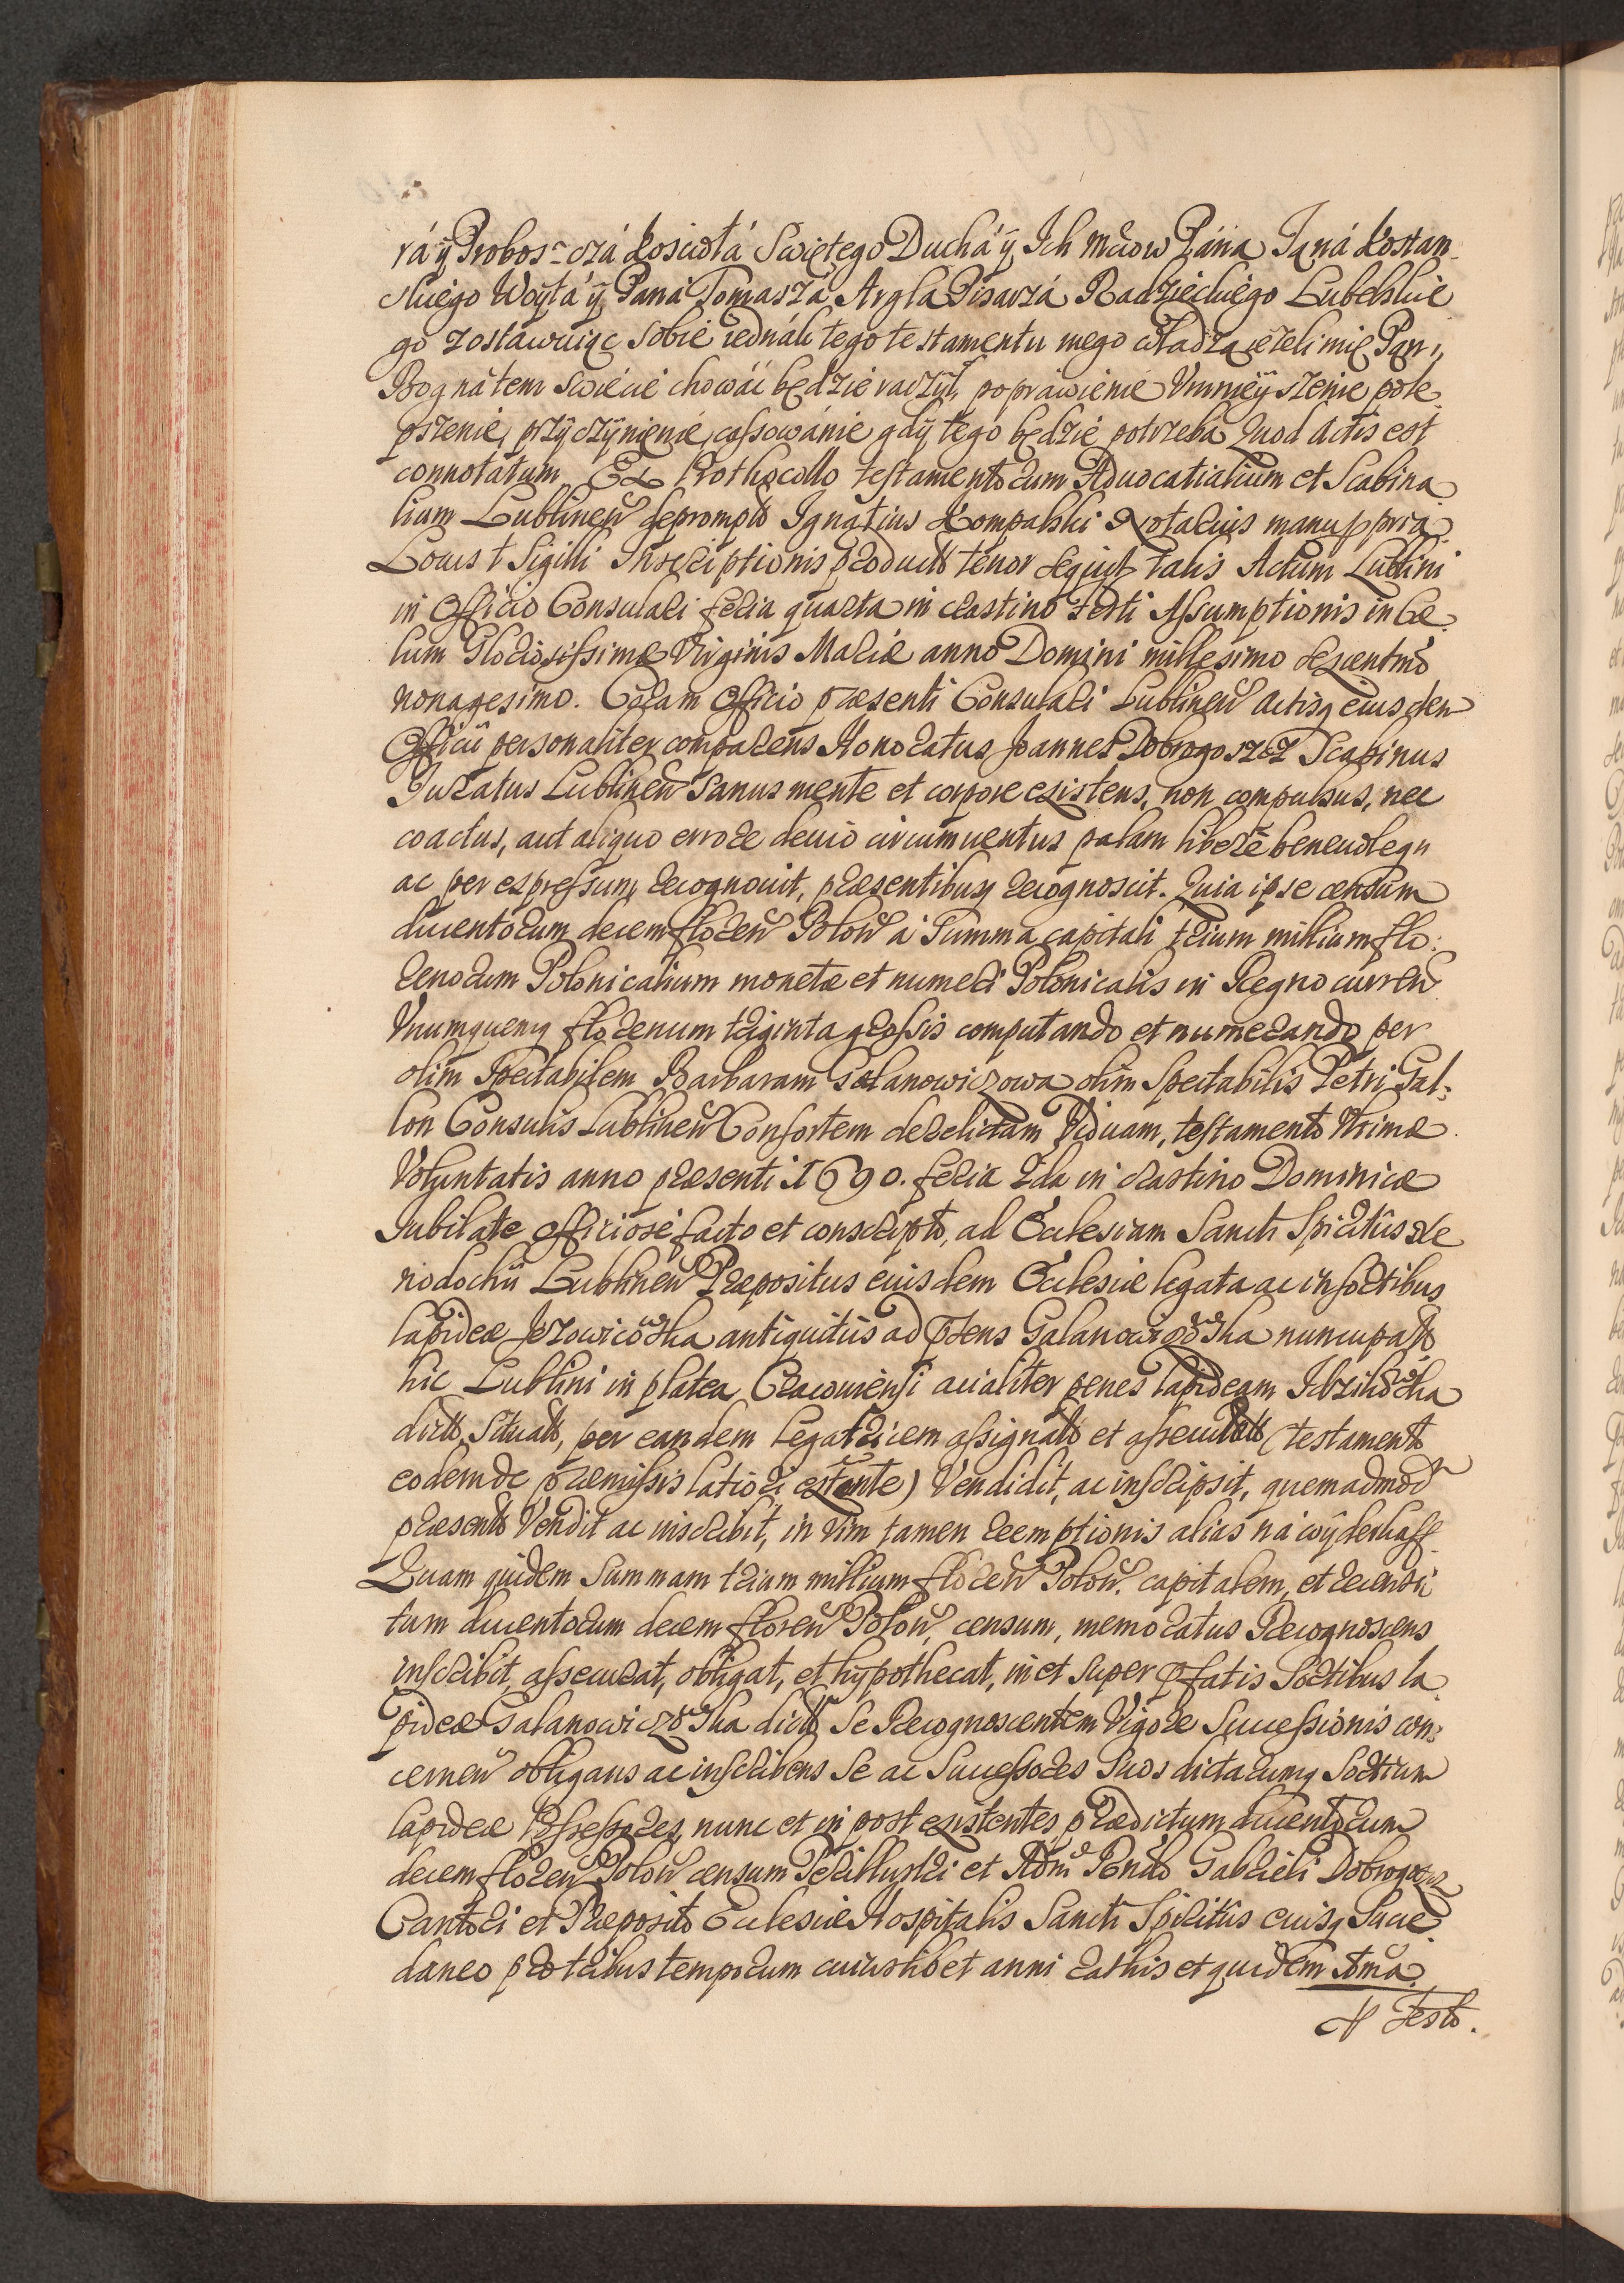 rá ÿ Probos-czá kosciołá Swiętego Duchá ÿ Ich Mciow Páná Janá Kostan-
skiego Woytá ÿ Paná Tomaszá Argla Pisarzá Radzieckiego Lubelskie
go zostawuiąc sobie iednák tego testamentu mego władzą ieżeli mię Pan
Bog ná tem swiecie chowáć będzie raczÿł, popráwienie Vmnieÿszenie pole
pszenie, przÿczÿnienie, cassowánie gdÿ tego będzie potrzeba Quod Actis est
connotatum Ex Prothocollo testamentorum Aduocatialium et Scabina
lium Lublinen depromptu Ignatius Kompalski Notarius manu ppria
Locus † Sigilli Inscriptionis producta tenor sequit talis Actum Lublini
in Officio Consulari feria quarta in crastino Festi Assumptionis in Cæ
lum Gloriosissimæ Virginis Mariæ anno Domini millesimo sexcentmo
nonagesimo. Coram Officio præsenti Consulari Lublinen Actisq eius dem
Officii personaliter comparens Honoratus Joannes Dobrogoszcz Scabinus
Juratus Lublinen Sanus mente et corpore existens, non compulsus, nec
coactus, aut aliquo errore deuio circumuentus palam liberè beneuole qu
ac per expressum recognouit, præsentibusq recognoscit. Quia ipse censum
ducentorum decem floren Polon à Summa capitali trium millium flo:
renorum Polonicalium monetæ et numeri Polonicalis in Regno curren
Vnumquemq florenum triginta grossis computando et numerando per
olim Spectabilem Barbaram Galanowiczowa olim Spectabilis Petri Gal-
lon Consulis Lublinen Consortem derelictam Viduam, testamento Vltimæ
Voluntatis anno præsenti 1690. feria 2da in crastino Dominicæ
Jubilate officiose facto et conscripto, ad Ecclesiam Sancti Spiritûs Xe
nodochii Lublinen Præpositus eiusdem Ecclesiæ legata ac in sortibus
lapideæ Jezowicowska antiquitus ad præsens Galanowiczowska nuncupato
hic Lublini in platea Cracouiensi acialiter penes lapideam
dicto, Situato, per eandem legatricem assignato et assecurato (testamento
eodem de præmissis latiori extante) Vendidit, ac inscripsit, quemadmod
præsento Vendit ac inscribit, in Vim tamen reemptionis alias ná wÿderkaff
Quam quidem Summam trium millium floren Polon. capitalem, et recensi
tum ducentorum decem floren Polon, censum, memoratus Recognoscens
inscribit, assecurat, obligat, et hÿpothecat, in et super præfatis Sortibus la
pideæ Galanowiczowska dicto Se Recognoscentem Vigore Successionis con-
cernen obligans ac inscribens Se ac Successores Suos dictarumq Sortium
lapideæ Possessores, nunc et in post existentes, prædictum ducentorum
decem floren Polon censum Perillustri et Admo Rendo Gabrieli Dobrogoszcz
Cantori et Præposito Ecclesiæ Hospitalis Sancti Spiritûs eiusq Succe
daneo pro tribus temporum cuiuslibet anni rathis et quidem
Festo.